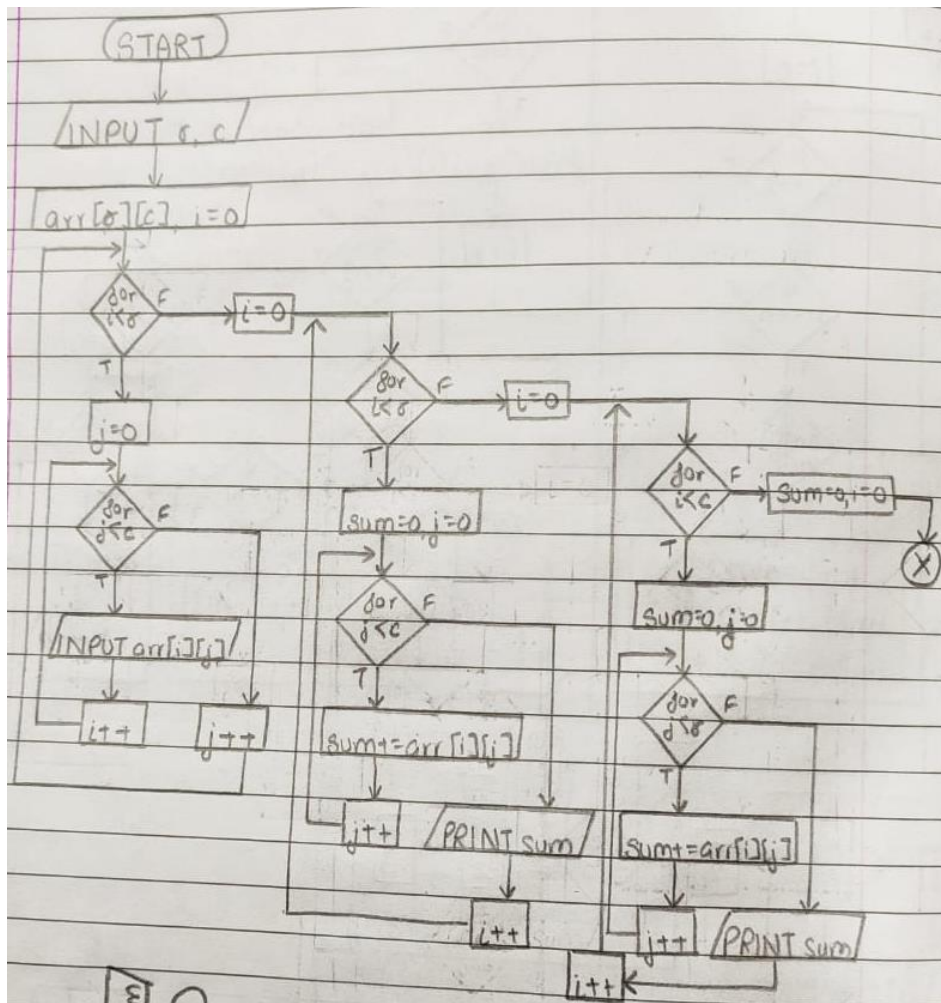 START
INPUT r, c
arr[r][c], i=0
for
i<r
F
T
j=0
for
j<c
F
T
INPUT arr[i][j]
i++
j++
i=0
for
i<r
F
T
sum=0, j=0
for
j<c
F
T
sum+=arr[i][j]
j++
PRINT sum
i++
i=0
for
i<c
F
T
sum=0, i=0
X
sum=0, j=0
for
j<r
F
T
sum+=arr[i][j]
j++
PRINT sum
i++